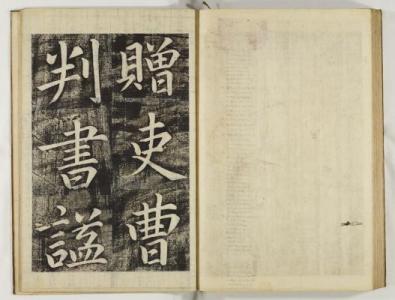 贈吏曹
判書謚